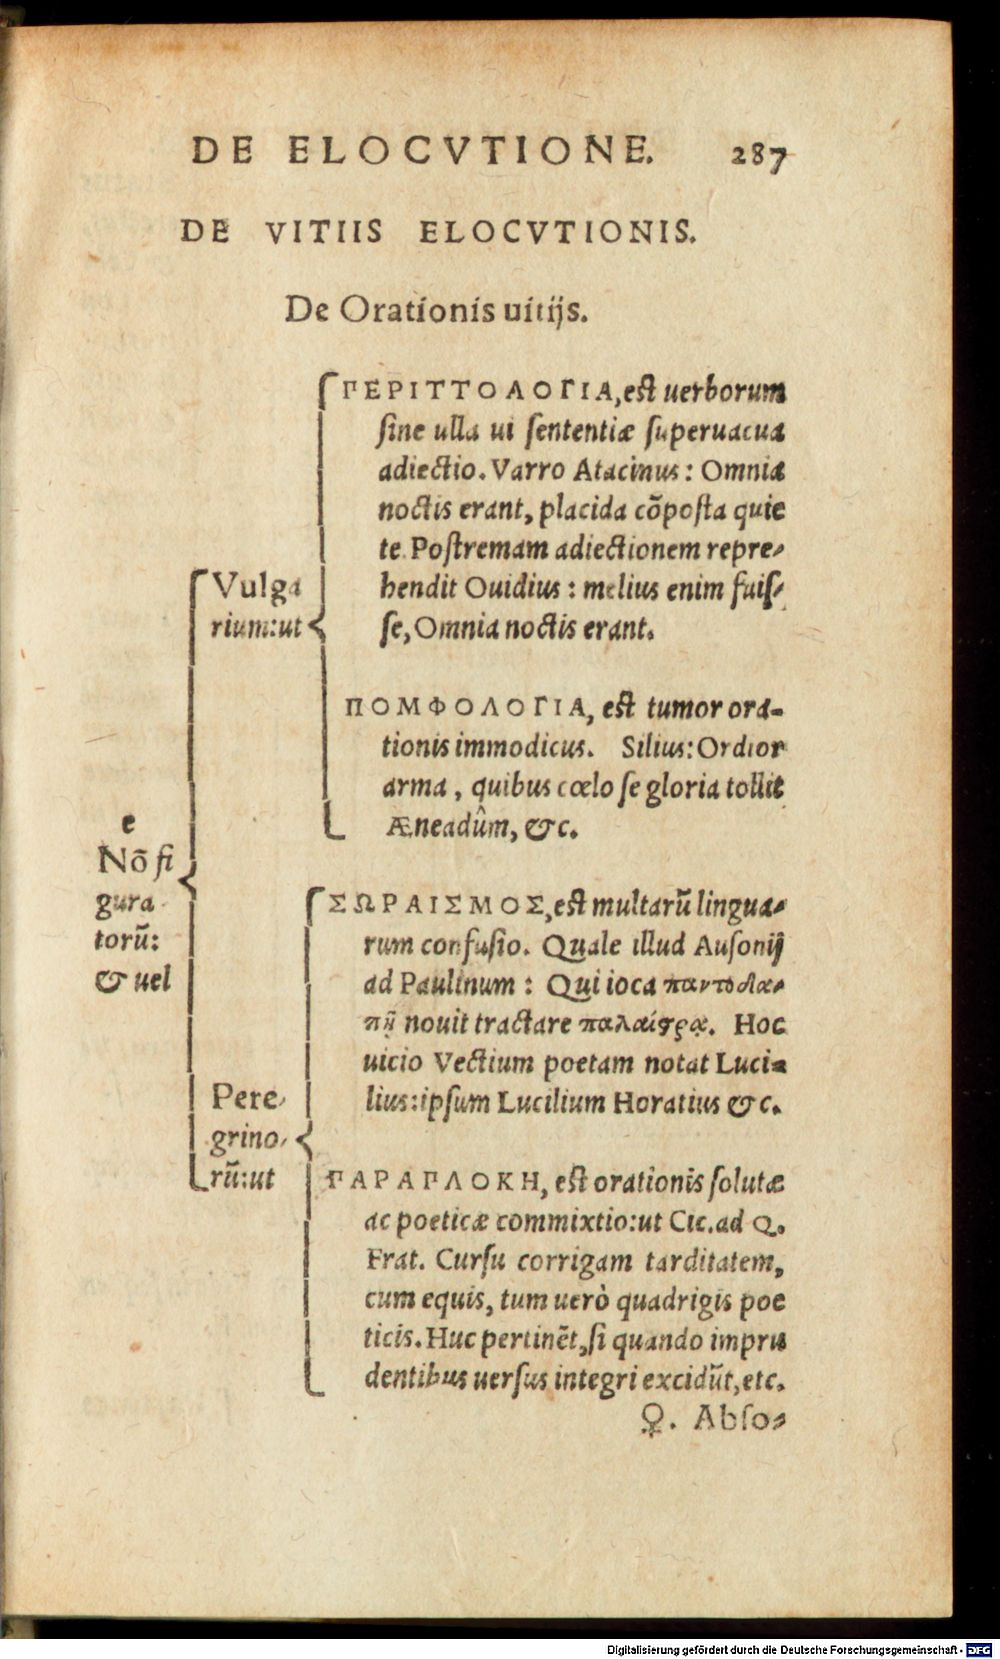 DE ELOCVTIONE. 287
DE VITIIS ELOCVTIONIS.
De Orationis uitijs.
e
Nõ fi
gura
torũ:
& uel
Vulga
rium:ut
ΠΕΡΙΤΤΟΛΟΓΙΑ, est uerborum
sine ulla ui sententiæ superuacua
adiectio. Varro Atacinus: Omnia
noctis erant, placida cõposta quie
te. Postremam adiectionem repre-
hendit Ouidius: melius enim fuis-
se, Omnia noctis erant.
ΠΟΜΦΟΛΟΓΙΑ, est tumor ora-
tionis immodicus. Silius: Ordior
arma, quibus cœlo se gloria tollit
Æneadûm, &c.
Pere-
grino-
rũ:ut
ΣΩΡΑΙΣΜΟΣ, est multarũ lingua-
rum confusio. Quale illud Ausonij
ad Paulinum: Qui ioca παντοδα-
πῇ nouit tractare παλαίϛρᾳ. Hoc
uicio Vectium poetam notat Luci-
lius: ipsum Lucilium Horatius &c.
ΠΑΡΑΠΛΟΚΗ, est orationis solutæ
ac poeticæ commixtio: ut Cic. ad Q.
Frat. Cursu corrigam tarditatem,
cum equis, tum uerò quadrigis poe
ticis. Huc pertinẽt, si quando impru
dentibus uersus integri excidũt, etc.
♀. Abso-
Digitalisierung gefördert durch die Deutsche Forschungsgemeinschaft - DFG